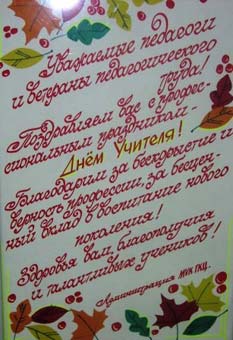 Уважаемые педагоги
и ветераны педагогического
труда!
Поздравляем вас с профес-
сиональным праздником -
Днём Учителя!
Благодарим за бескорыстие и
верность профессии, за бесцен-
ный вклад в воспитание нового
поколения!
Здоровья вам, благополучия
и талантливых учеников!
Администрация МУК ГКЦ.